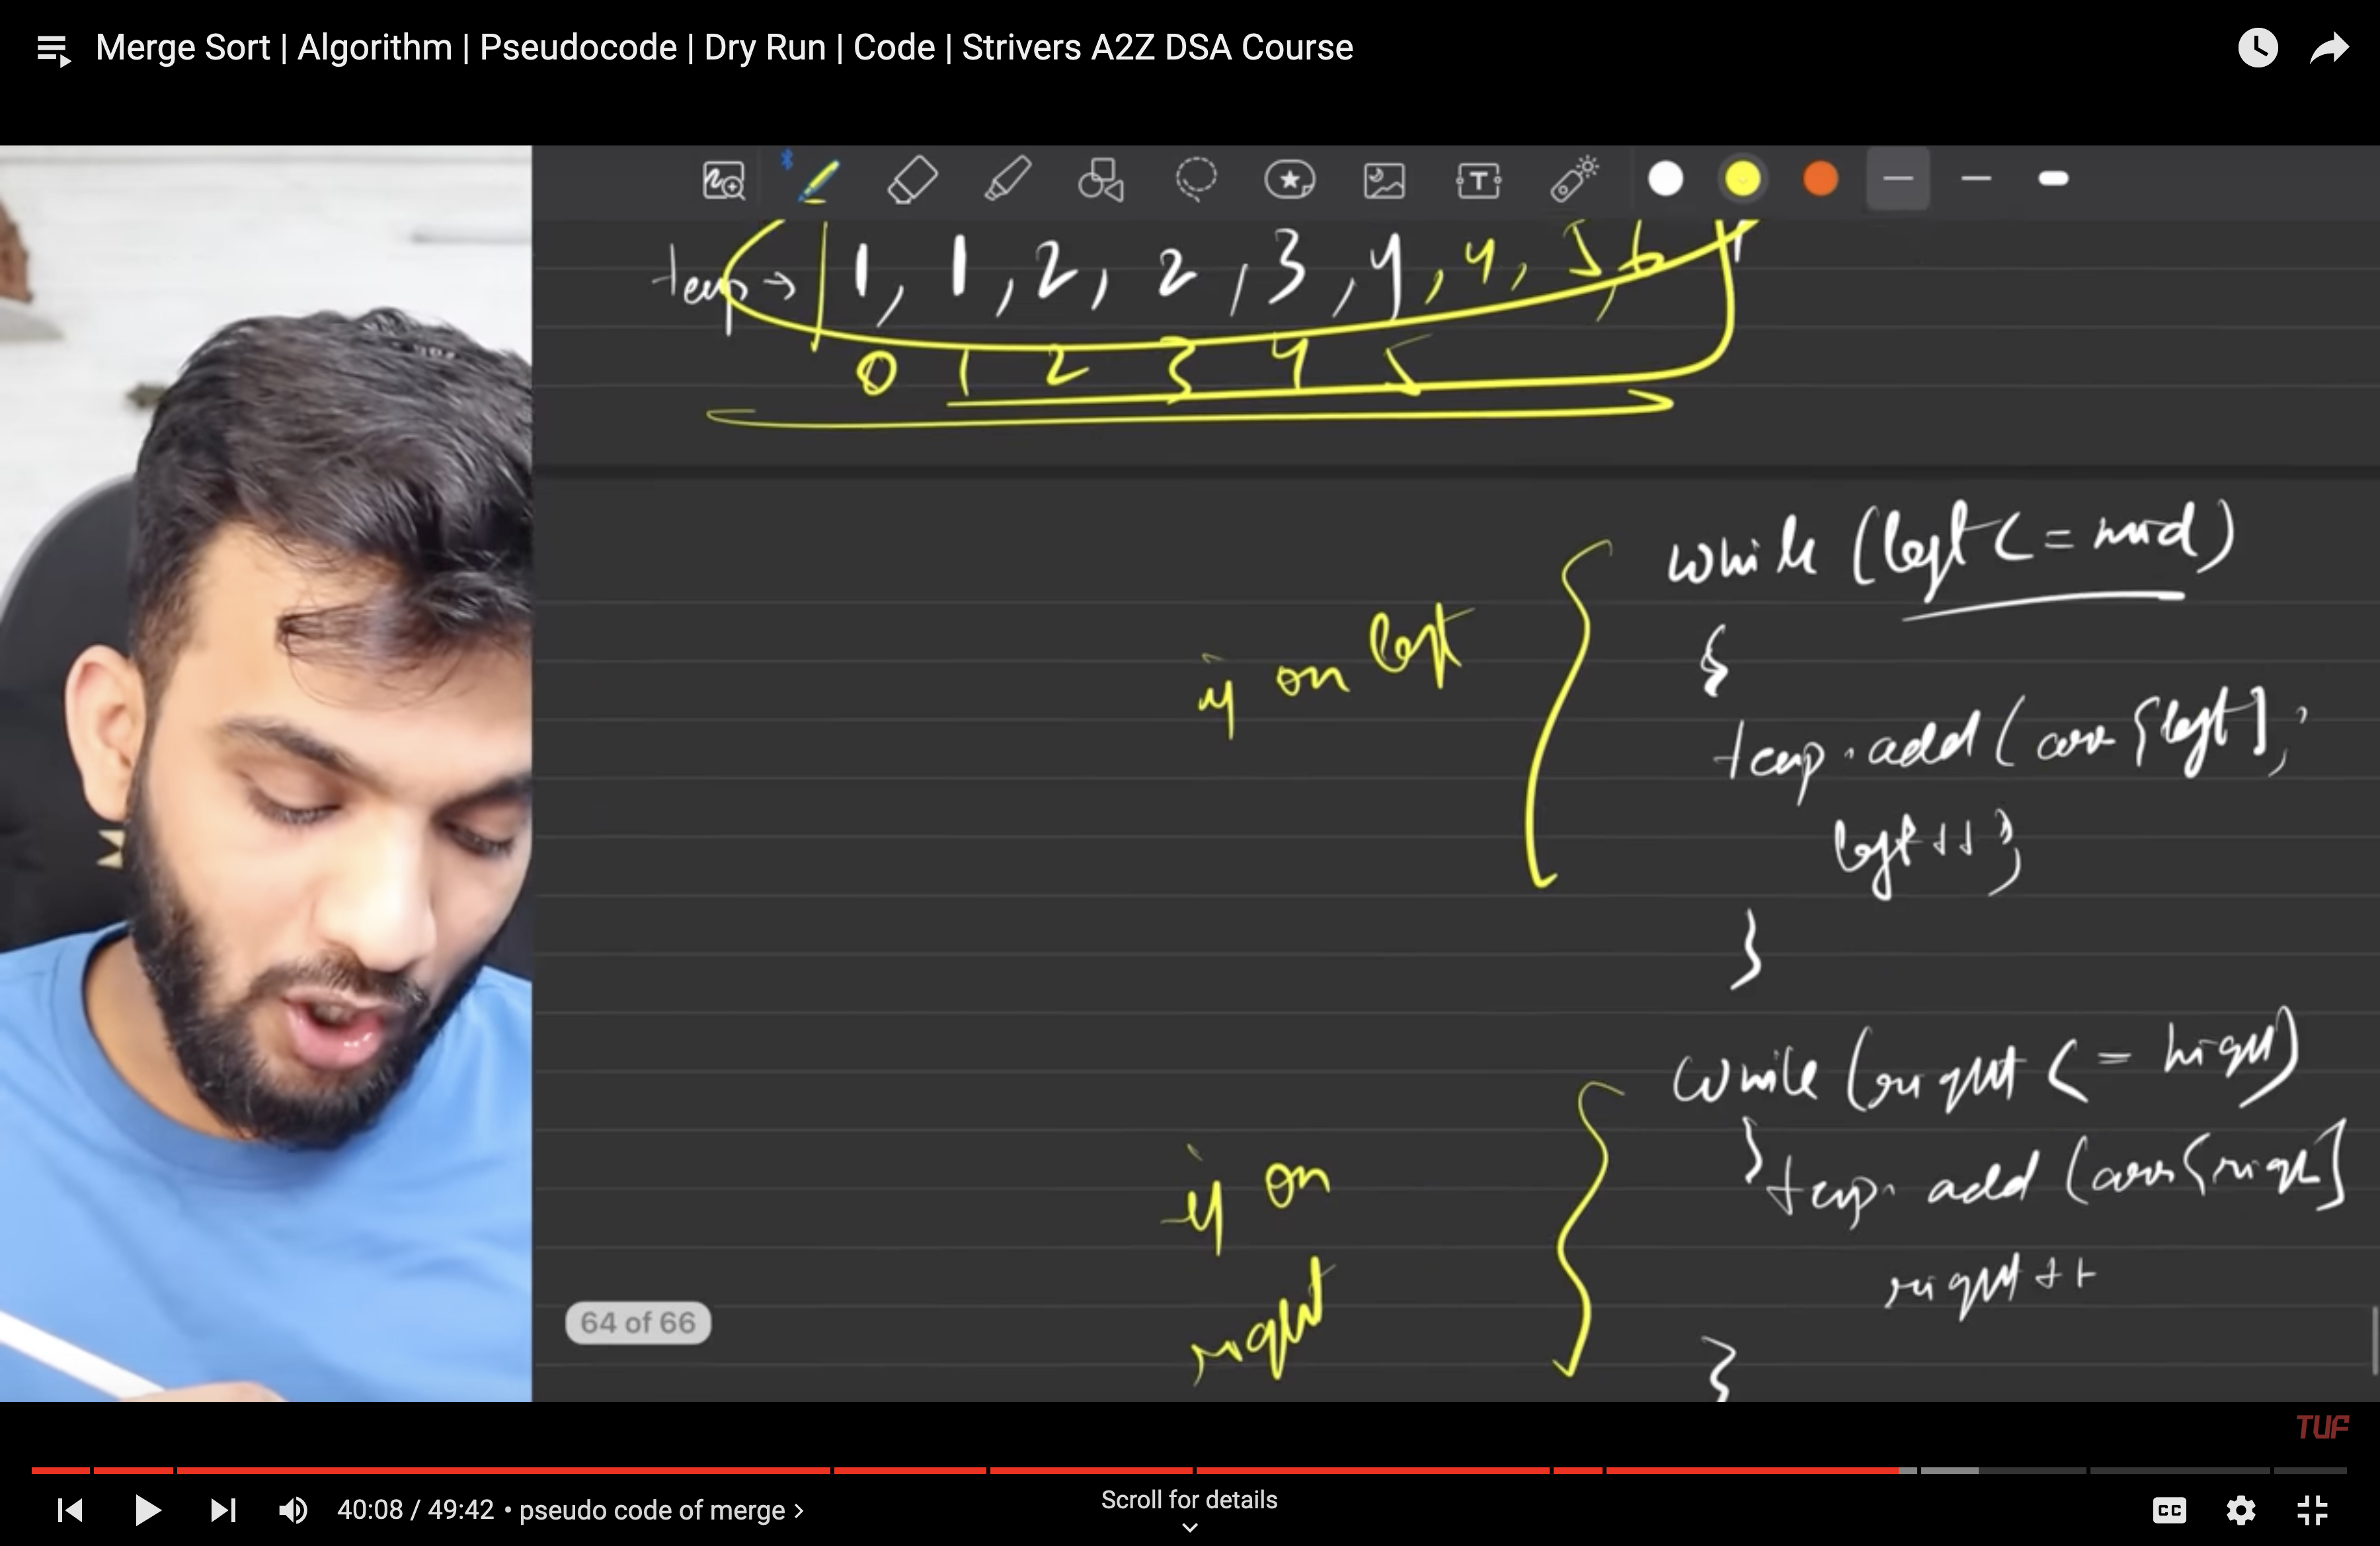 Merge Sort | Algorithm | Pseudocode | Dry Run | Code | Strivers A2Z DSA Course
T
temp → | 1, 1, 2, 2, 3, 4, 4, 5, 6
0 1 2 3 4 5
while (left <= mid)
{
if on left
temp.add(arr[left];
left++;
}
while (right <= high)
{ temp.add(arr[right]
if on
right
right++
}
64 of 66
TUF
40:08 / 49:42 • pseudo code of merge >
Scroll for details
CC